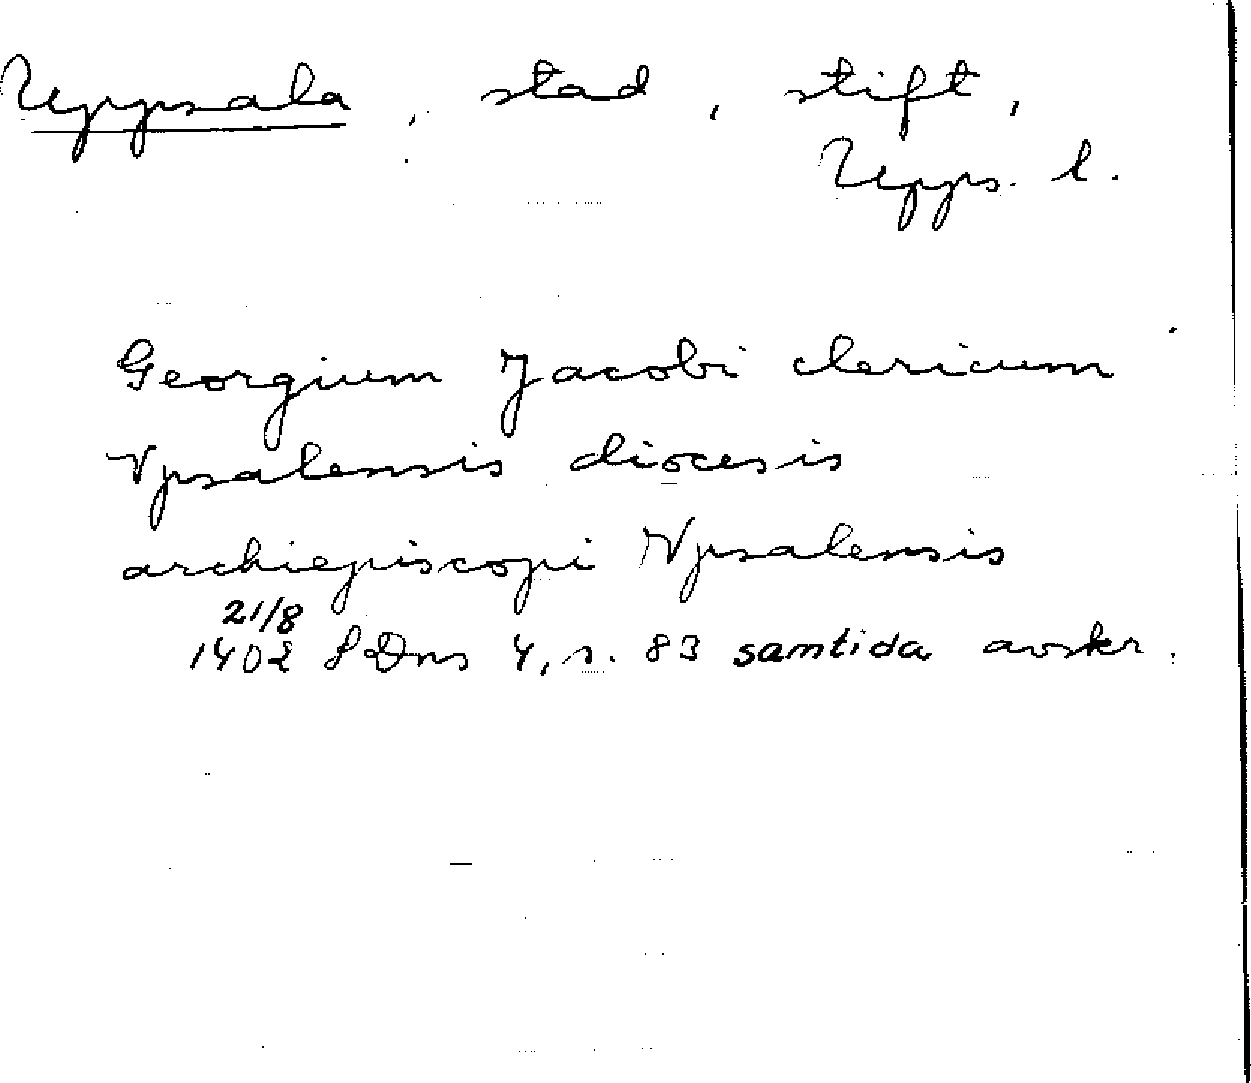 Uppsala, stad, stift,
Upps. l.
Georgium Jacobi clericum
Vpsalensis diocesis
archiepiscopi Vpsalensis
21/8
1402 SDns 4, s. 83 samtida avskr.